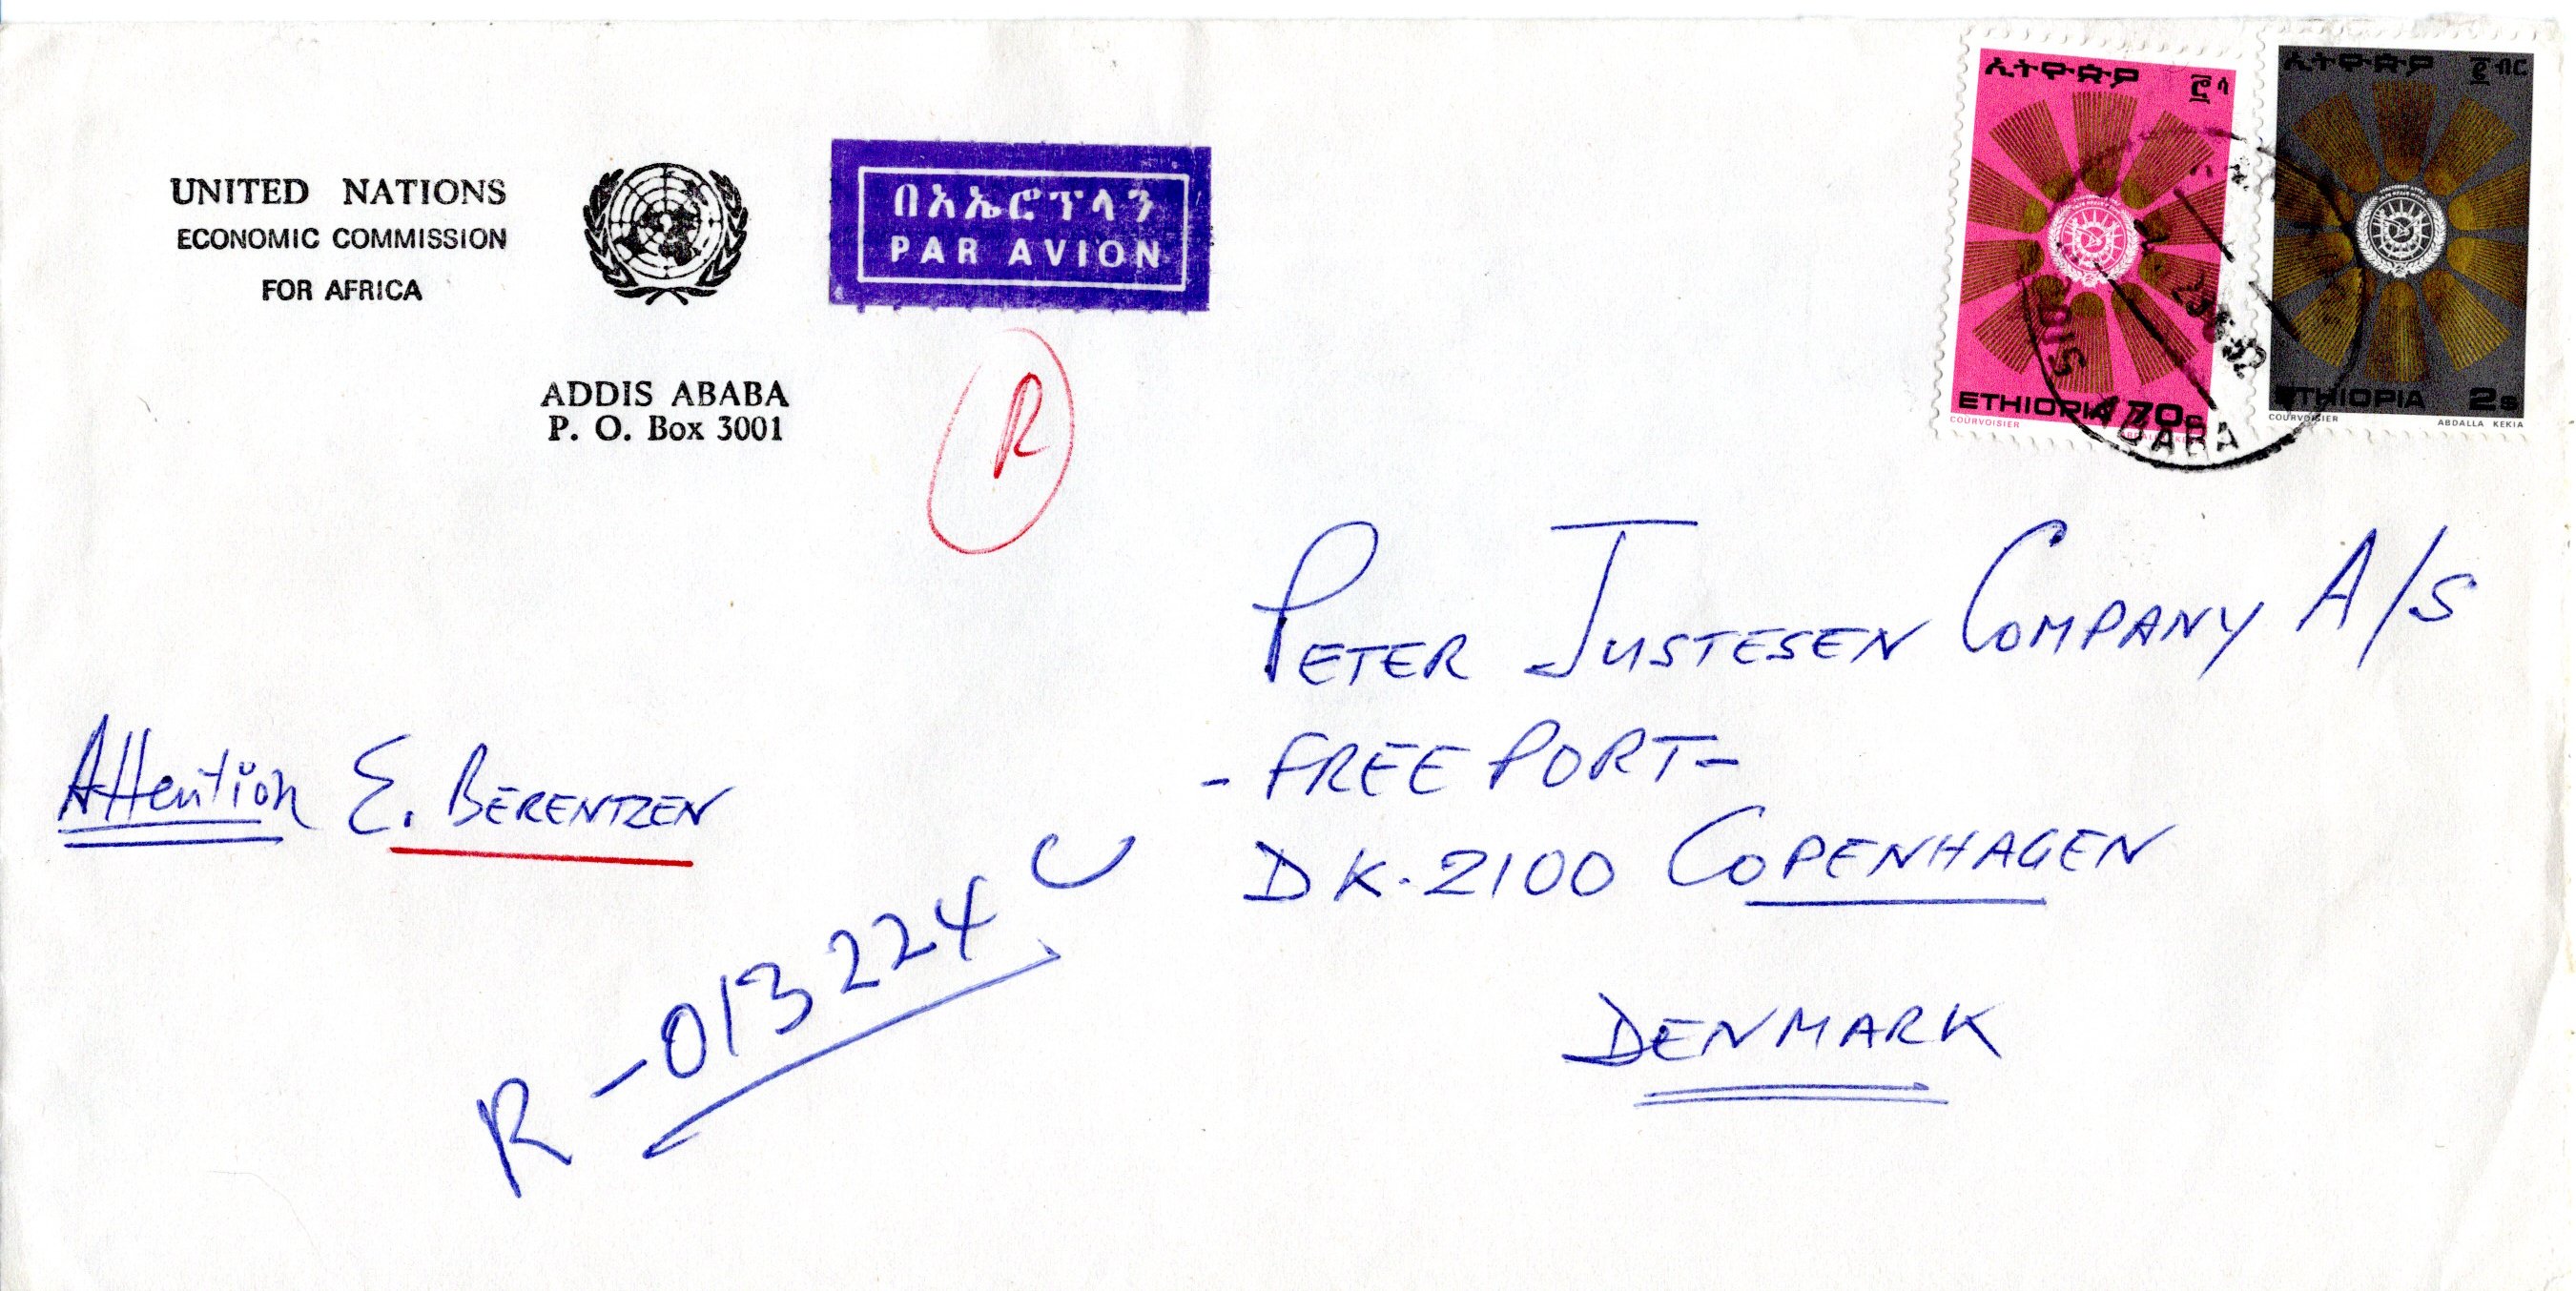 UNITED NATIONS
ECONOMIC COMMISSION
FOR AFRICA
ADDIS ABABA
P. O. Box 3001
በአኤሮፕላን
PAR AVION
R
ኢትዮጵያ
ETHIOPIA 70c
COURVOISIER
ኢትዮጵያ ብር
ETHIOPIA 2
COURVOISIER ABDALLA KEKIA
ADDIS ABABA
PETER JUSTESEN COMPANY A/S
- FREE PORT -
DK-2100 COPENHAGEN
DENMARK
Attention E. BERENTZEN
R-013224